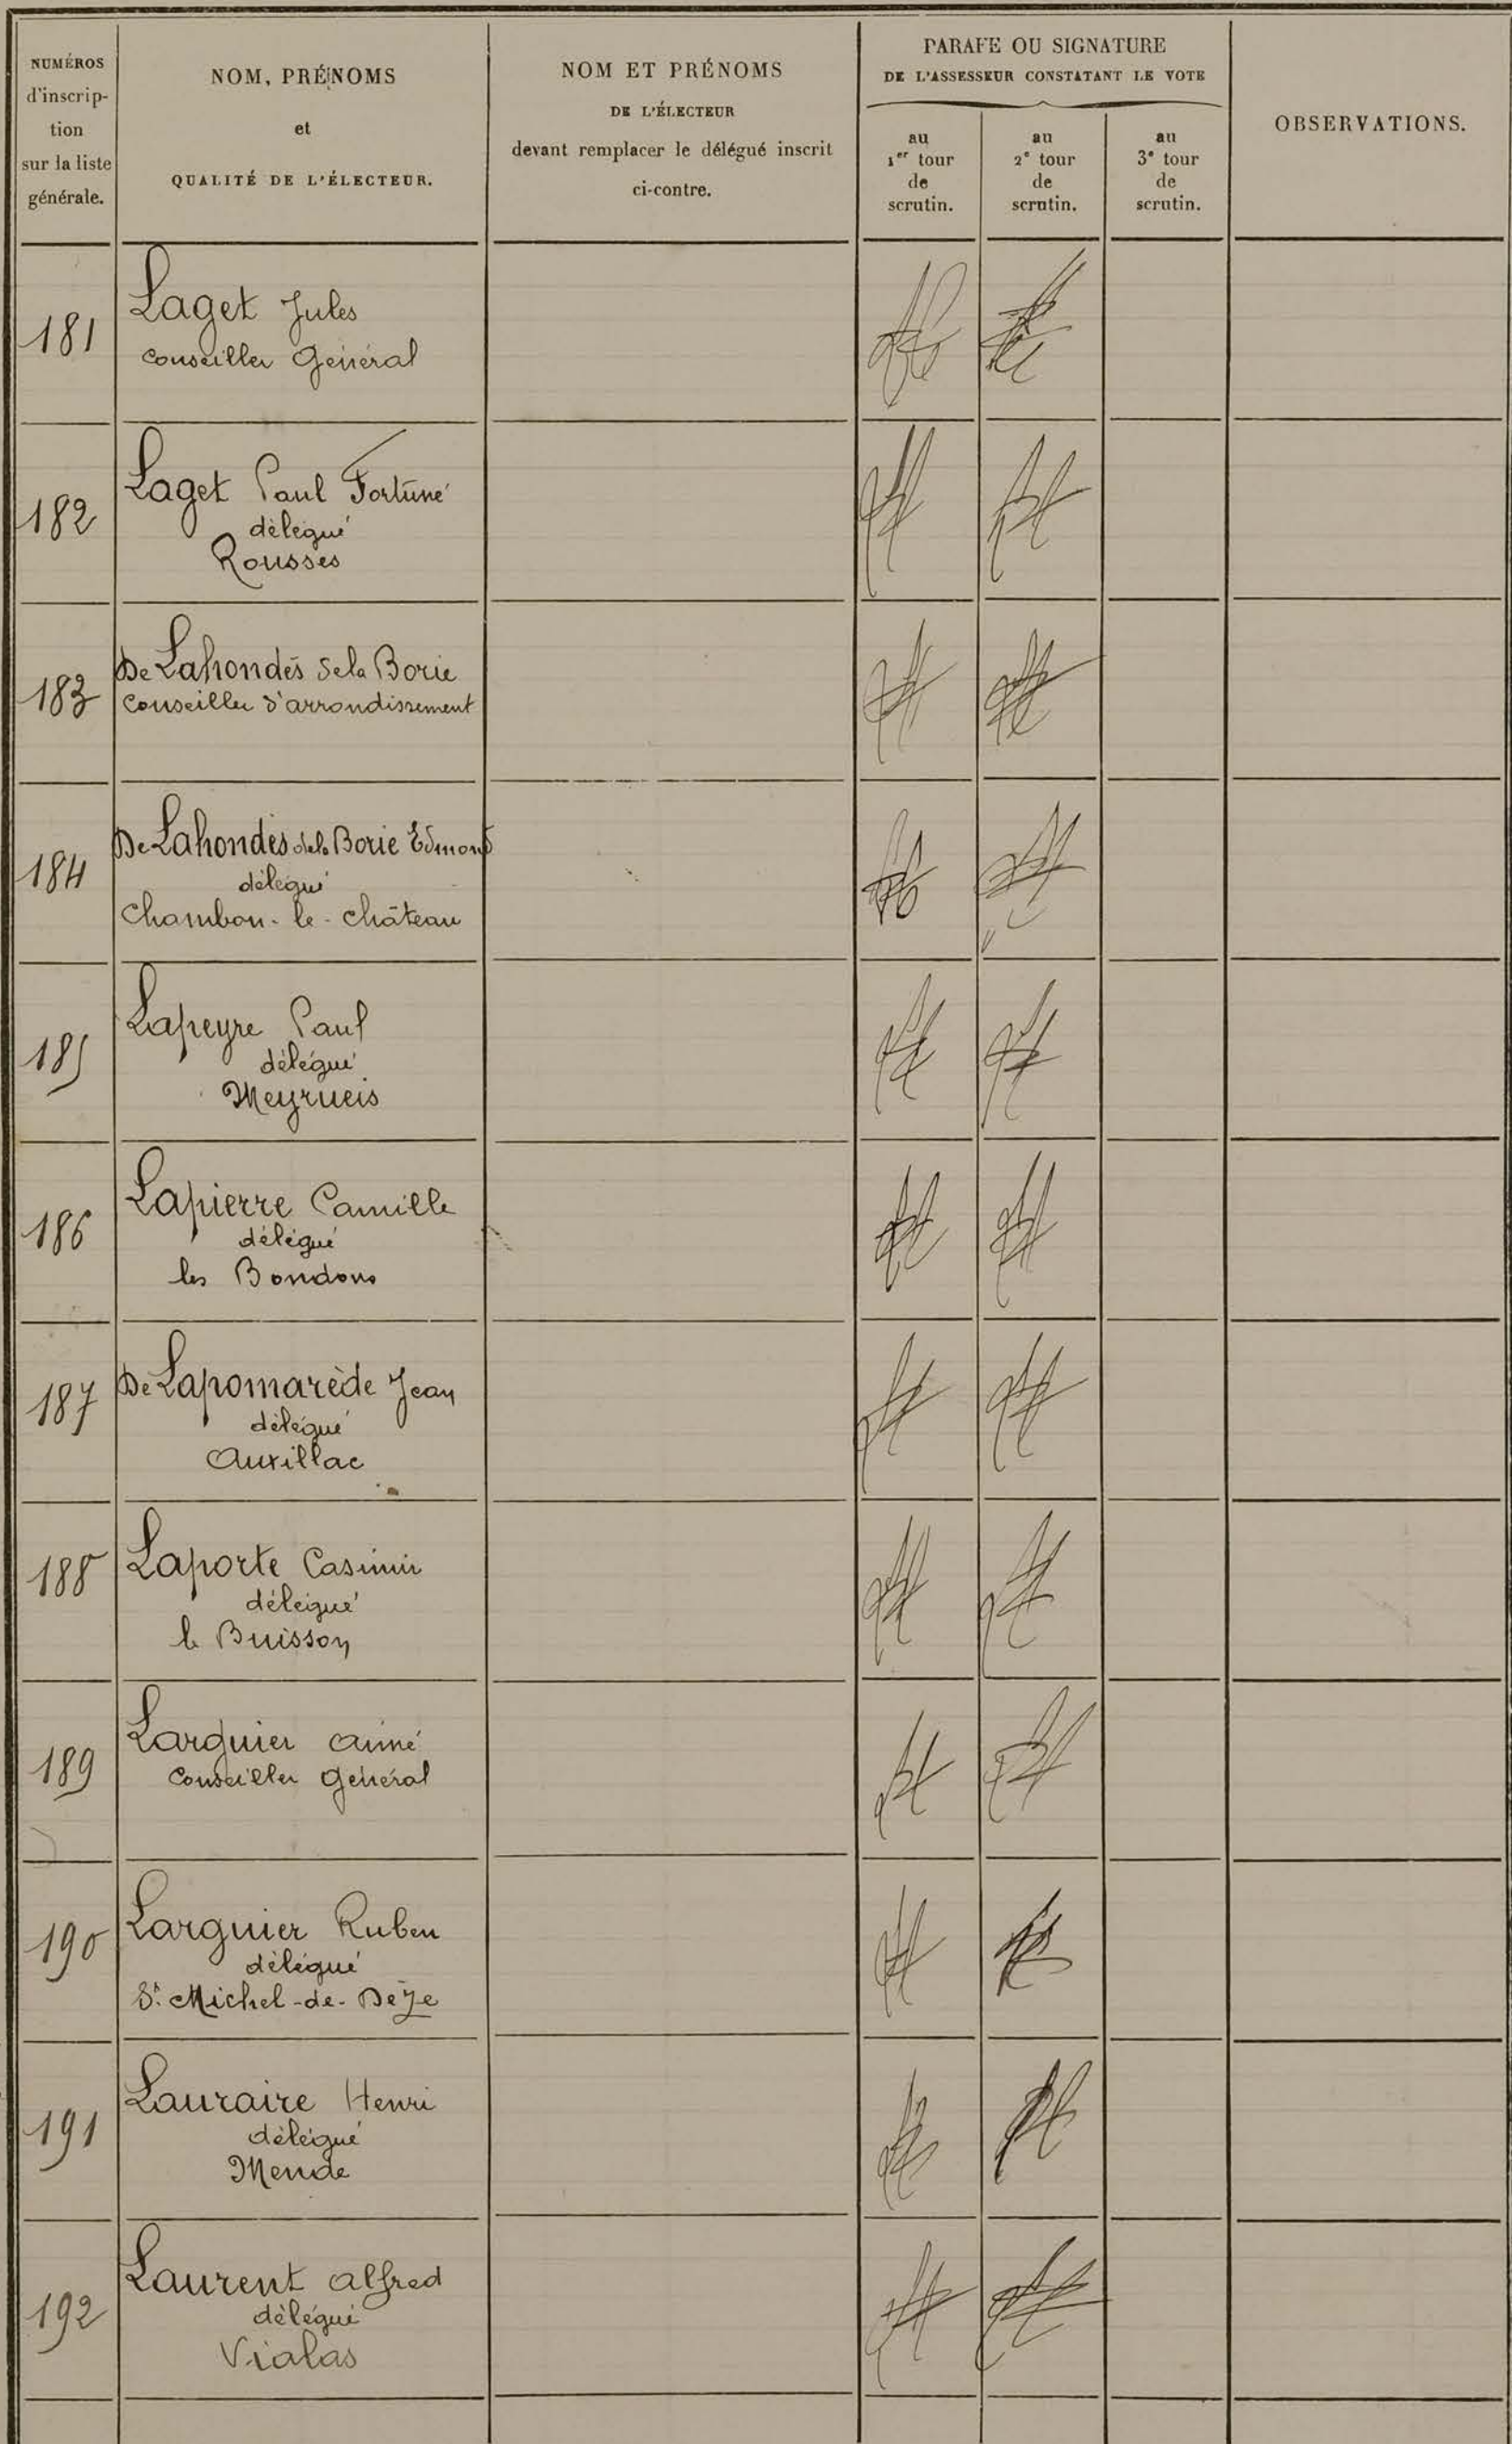 NUMÉROS
d'inscrip-
tion
sur la liste
générale.
NOM, PRÉNOMS
et
QUALITÉ DE L'ÉLECTEUR.
NOM ET PRÉNOMS
DE L'ÉLECTEUR
devant remplacer le délégué inscrit
ci-contre.
PARAFE OU SIGNATURE
DE L'ASSESSEUR CONSTATANT LE VOTE
au
1er tour
de
scrutin.
au
2e tour
de
scrutin.
au
3e tour
de
scrutin.
OBSERVATIONS.
181
Laget Jules
Conseiller Général
182
Laget Paul Fortuné
délégué
Rousses
183
De Lahondès de la Borie
Conseiller d'arrondissement
184
De Lahondès de la Borie Edmond
délégué
Chambon-le-Château
185
Lapeyre Paul
délégué
Meyrueis
186
Lapierre Camille
délégué
les Bondons
187
De Lapomarède Jean
délégué
Auxillac
188
Laporte Casimir
délégué
le Buisson
189
Larguier Aimé
Conseiller Général
190
Larguier Ruben
délégué
St. Michel-de-Dèze
191
Lauraire Henri
délégué
Mende
192
Laurent Alfred
délégué
Vialas